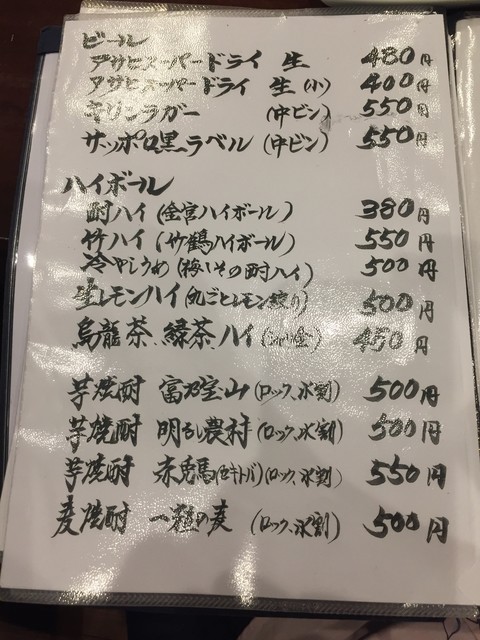 ビール
アサヒスーパードライ 生 480円
アサヒスーパードライ 生(小) 400円
キリンラガー (中ビン) 550円
サッポロ黒ラベル (中ビン) 550円
ハイボール
酎ハイ (金宮ハイボール) 380円
竹ハイ (竹鶴ハイボール) 550円
冷やしうめ (梅いその酎ハイ) 500円
生レモンハイ (丸ごとレモン絞り) 500円
烏龍茶、緑茶ハイ 450円
芋焼酎 富乃宝山 (ロック、水割) 500円
芋焼酎 明るい農村 (ロック、水割) 500円
芋焼酎 赤兎馬 (セキトバ) (ロック、水割) 550円
麦焼酎 一粒の麦 (ロック、水割) 500円